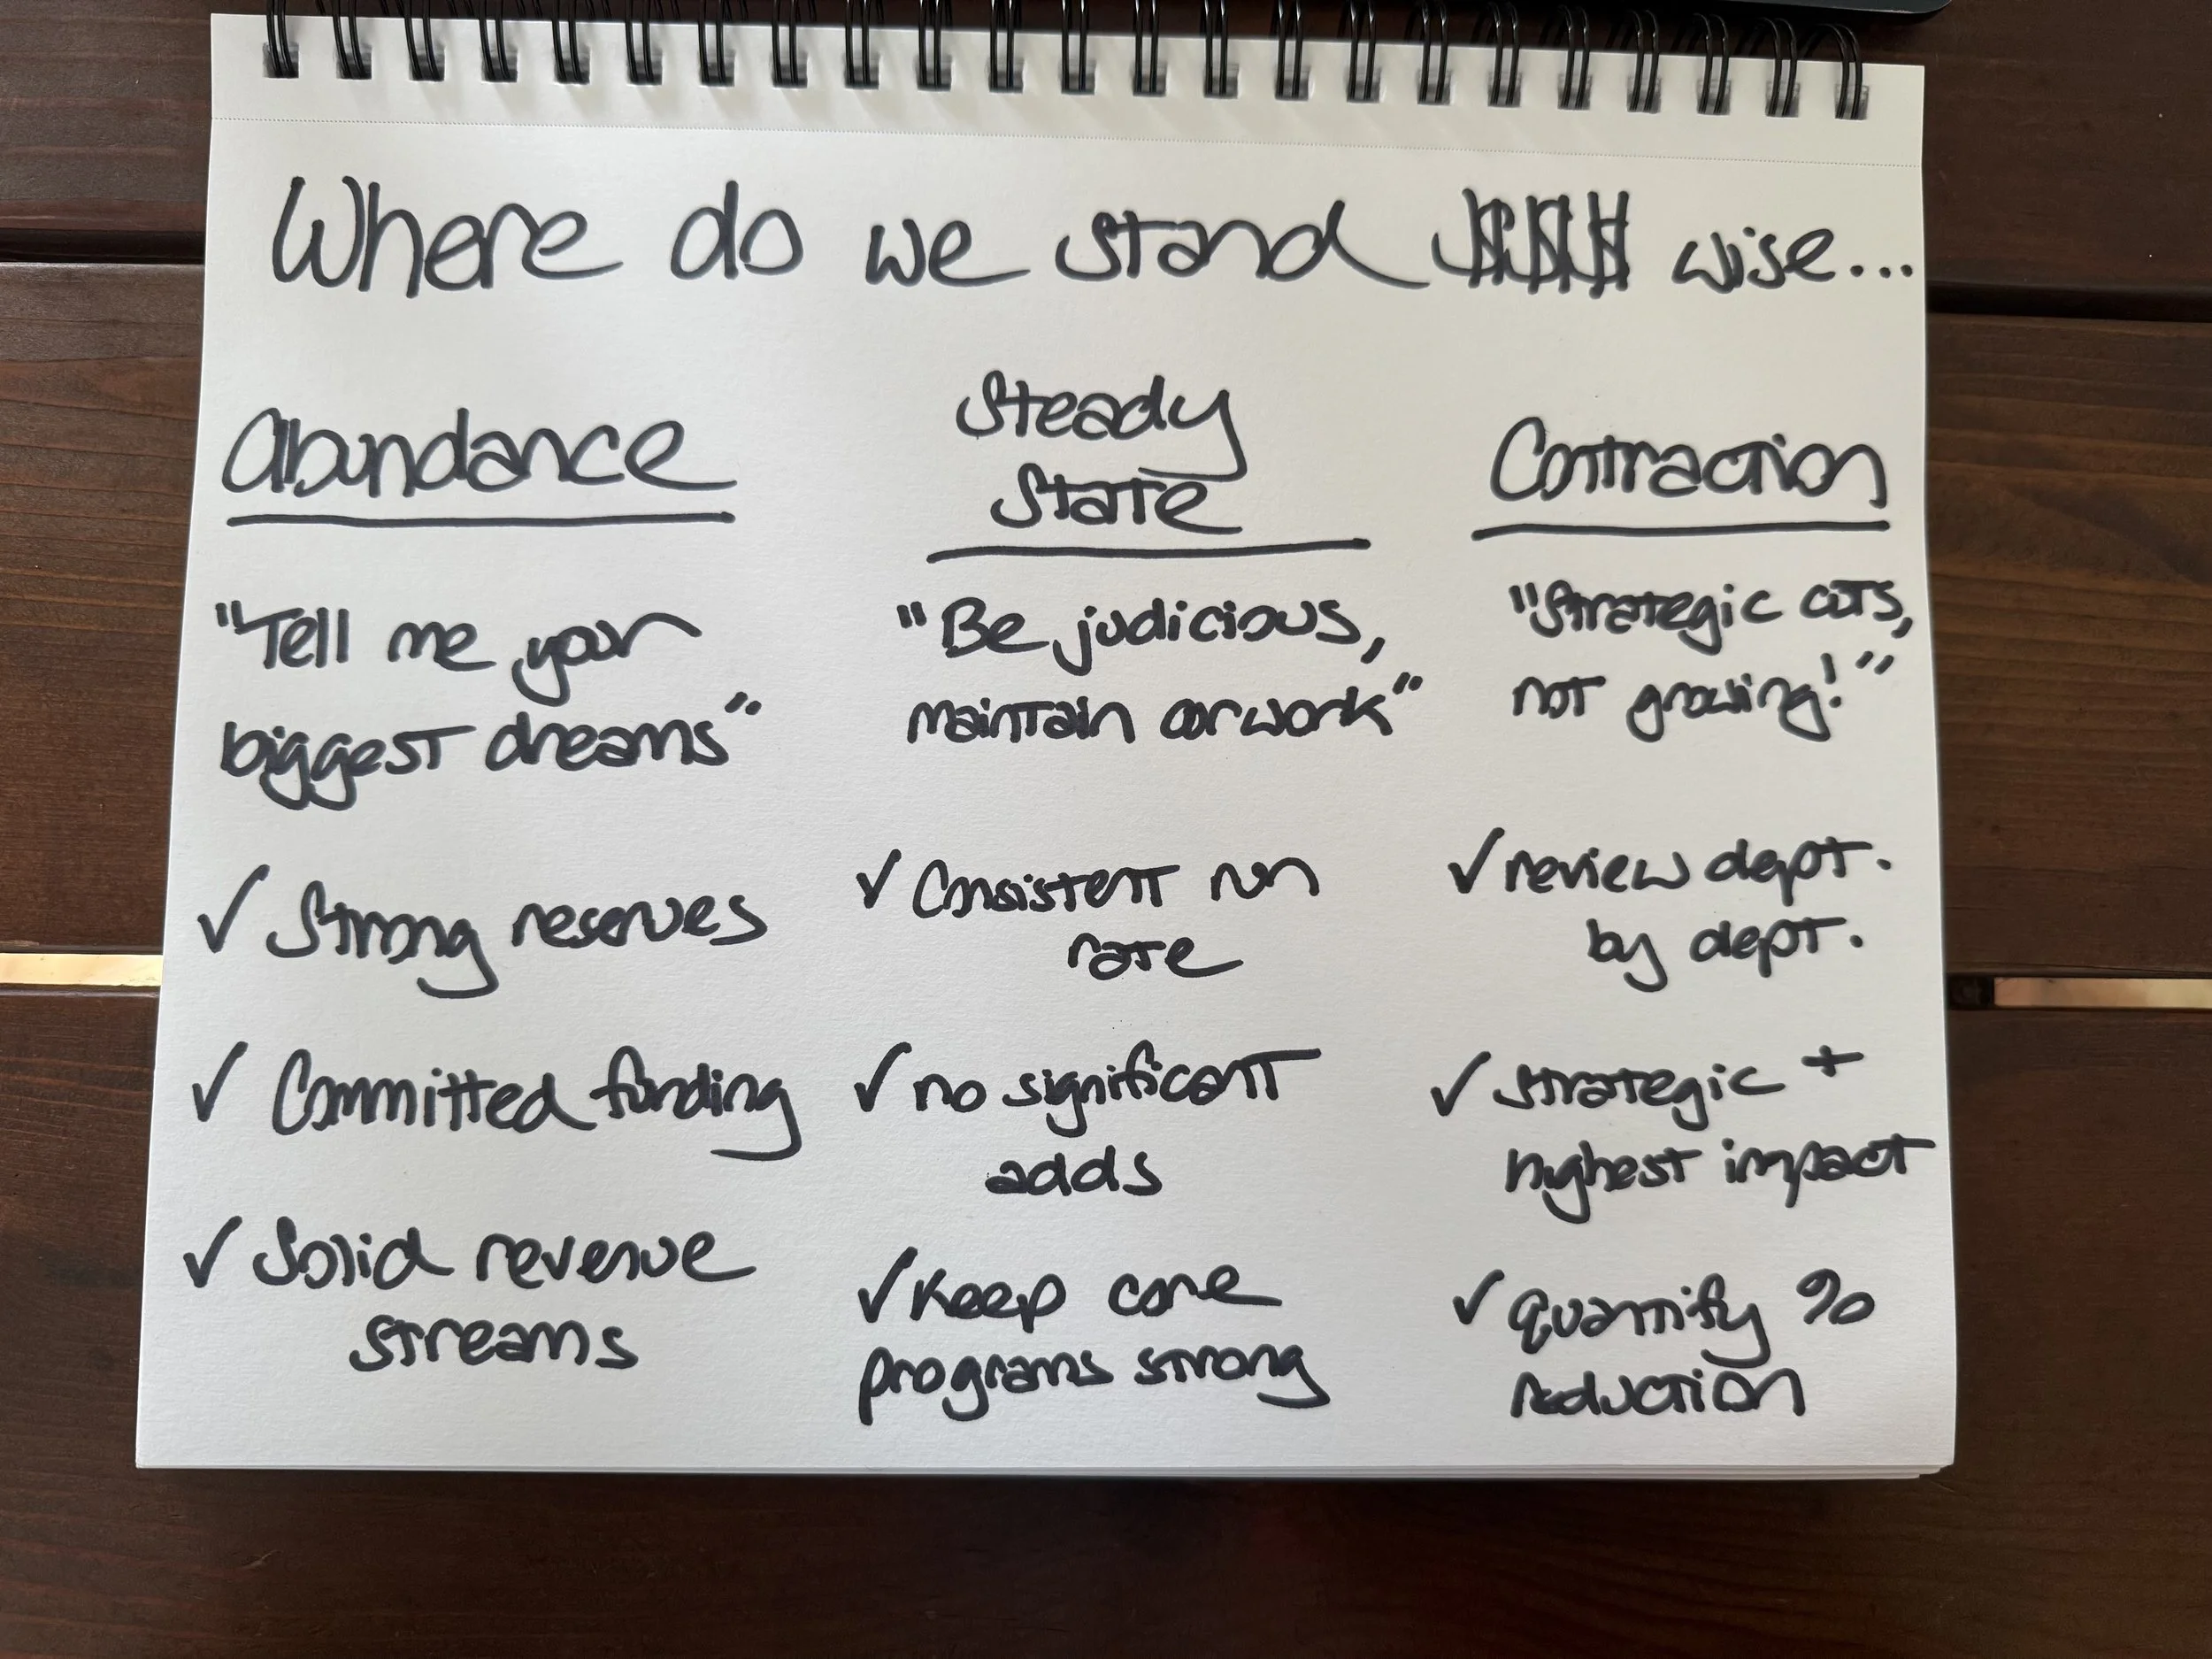 Where do we stand $$$ wise...
Abundance
"Tell me your
biggest dreams"
✓ Strong reserves
✓ Committed funding
✓ Solid revenue
streams
Steady
State
"Be judicious,
maintain our work"
✓ Consistent run
rate
✓ no significant
adds
✓ Keep core
programs strong
Contraction
"Strategic cuts,
not growing!"
✓ review dept.
by dept.
✓ strategic +
highest impact
✓ quantify %
reduction